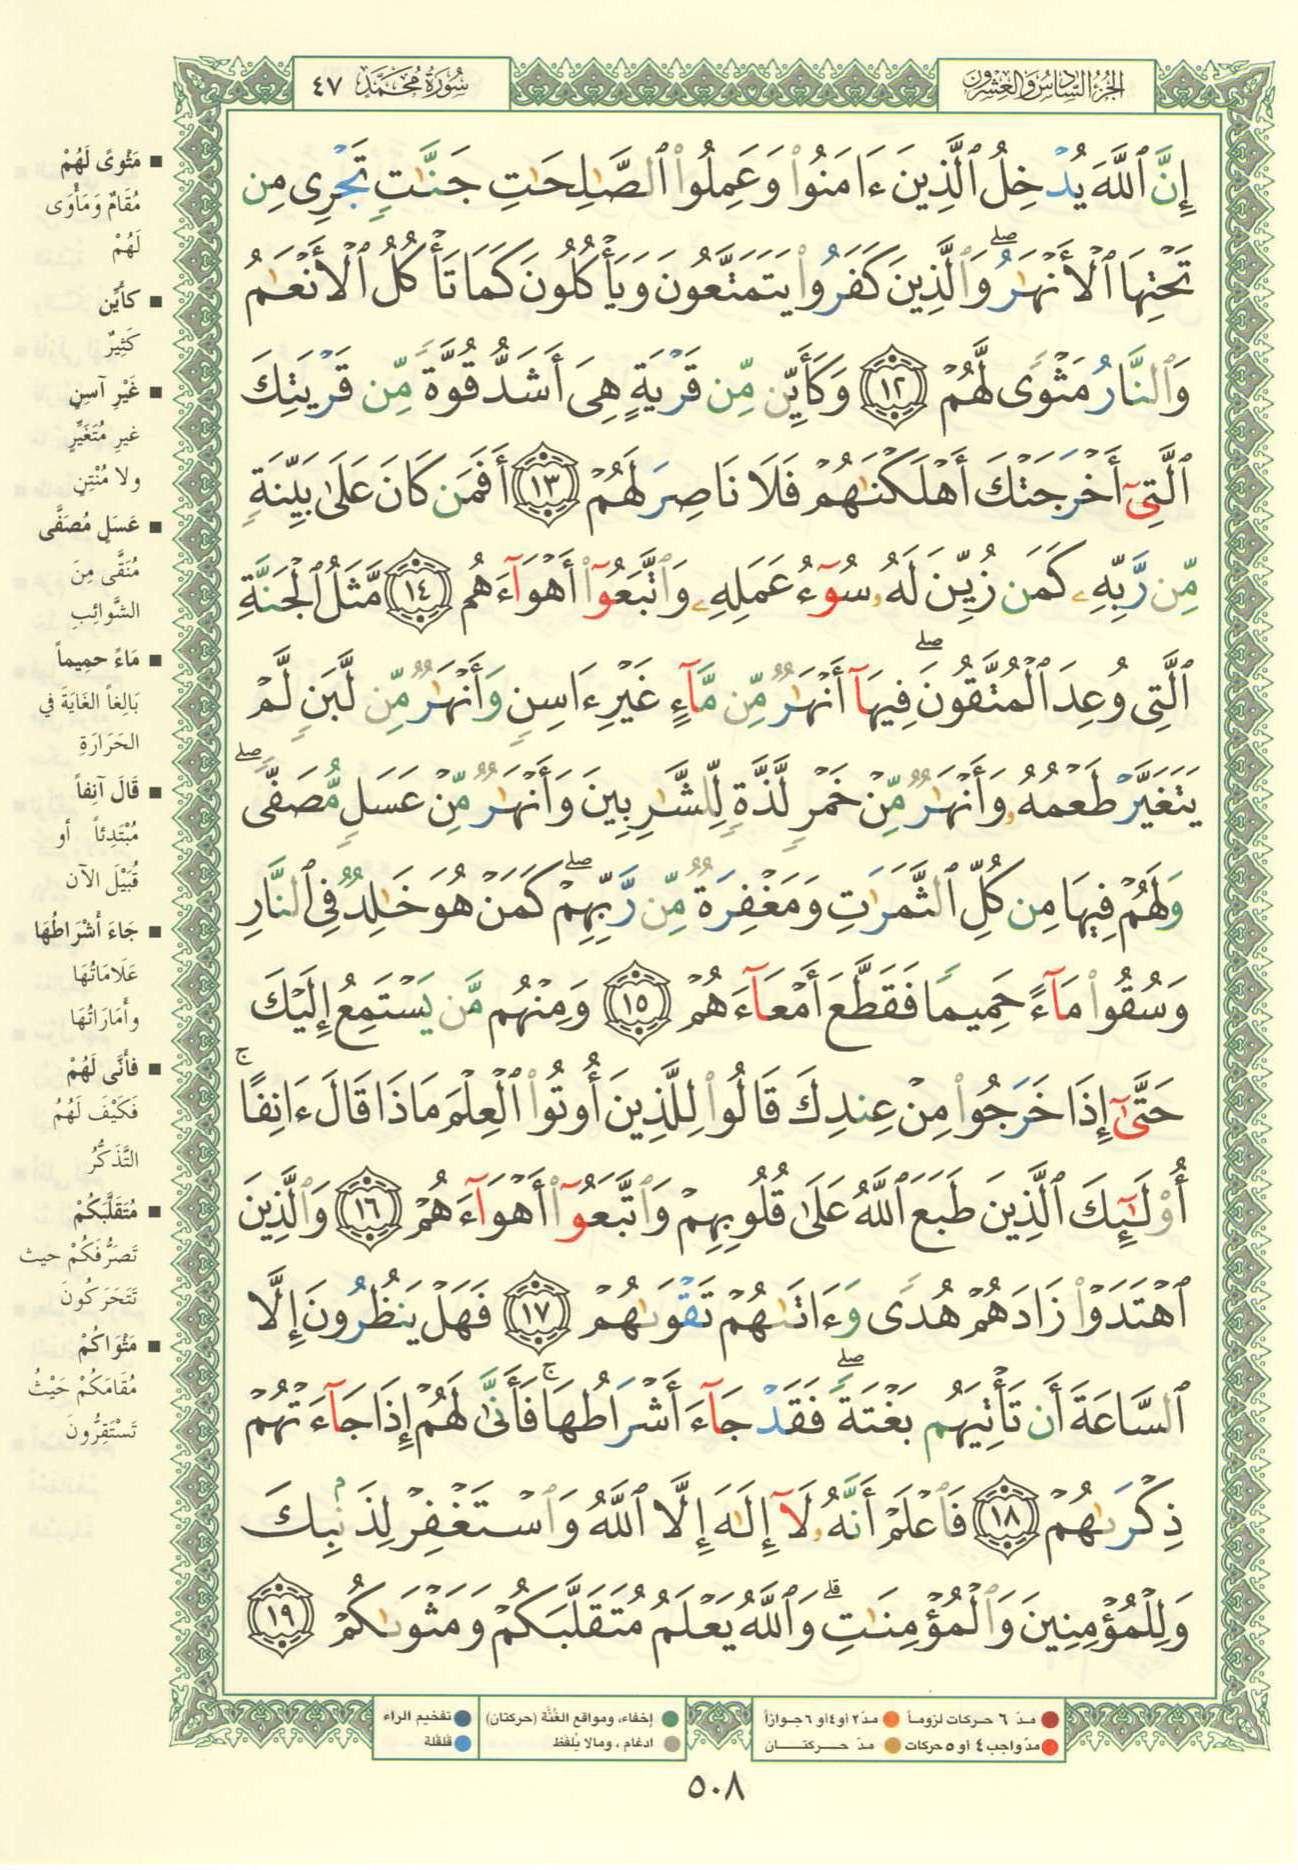 الجزء السادس والعشرون
سورة محمد ٤٧
إِنَّ ٱللَّهَ يُدْخِلُ ٱلَّذِينَ ءَامَنُوا۟ وَعَمِلُوا۟ ٱلصَّـٰلِحَـٰتِ جَنَّـٰتٍ تَجْرِى مِن
تَحْتِهَا ٱلْأَنْهَـٰرُ ۖ وَٱلَّذِينَ كَفَرُوا۟ يَتَمَتَّعُونَ وَيَأْكُلُونَ كَمَا تَأْكُلُ ٱلْأَنْعَـٰمُ
وَٱلنَّارُ مَثْوًى لَّهُمْ ١٢ وَكَأَيِّن مِّن قَرْيَةٍ هِىَ أَشَدُّ قُوَّةً مِّن قَرْيَتِكَ
ٱلَّتِىٓ أَخْرَجَتْكَ أَهْلَكْنَـٰهُمْ فَلَا نَاصِرَ لَهُمْ ١٣ أَفَمَن كَانَ عَلَىٰ بَيِّنَةٍ
مِّن رَّبِّهِۦ كَمَن زُيِّنَ لَهُۥ سُوٓءُ عَمَلِهِۦ وَٱتَّبَعُوٓا۟ أَهْوَآءَهُم ١٤ مَّثَلُ ٱلْجَنَّةِ
ٱلَّتِى وُعِدَ ٱلْمُتَّقُونَ ۖ فِيهَآ أَنْهَـٰرٌ مِّن مَّآءٍ غَيْرِ ءَاسِنٍ وَأَنْهَـٰرٌ مِّن لَّبَنٍ لَّمْ
يَتَغَيَّرْ طَعْمُهُۥ وَأَنْهَـٰرٌ مِّنْ خَمْرٍ لَّذَّةٍ لِّلشَّـٰرِبِينَ وَأَنْهَـٰرٌ مِّنْ عَسَلٍ مُّصَفًّى ۖ
وَلَهُمْ فِيهَا مِن كُلِّ ٱلثَّمَرَٰتِ وَمَغْفِرَةٌ مِّن رَّبِّهِمْ ۖ كَمَنْ هُوَ خَـٰلِدٌ فِى ٱلنَّارِ
وَسُقُوا۟ مَآءً حَمِيمًا فَقَطَّعَ أَمْعَآءَهُمْ ١٥ وَمِنْهُم مَّن يَسْتَمِعُ إِلَيْكَ
حَتَّىٰٓ إِذَا خَرَجُوا۟ مِنْ عِندِكَ قَالُوا۟ لِلَّذِينَ أُوتُوا۟ ٱلْعِلْمَ مَاذَا قَالَ ءَانِفًا ۚ
أُو۟لَـٰٓئِكَ ٱلَّذِينَ طَبَعَ ٱللَّهُ عَلَىٰ قُلُوبِهِمْ وَٱتَّبَعُوٓا۟ أَهْوَآءَهُمْ ١٦ وَٱلَّذِينَ
ٱهْتَدَوْا۟ زَادَهُمْ هُدًى وَءَاتَىٰهُمْ تَقْوَىٰهُمْ ١٧ فَهَلْ يَنظُرُونَ إِلَّا
ٱلسَّاعَةَ أَن تَأْتِيَهُم بَغْتَةً ۖ فَقَدْ جَآءَ أَشْرَاطُهَا ۚ فَأَنَّىٰ لَهُمْ إِذَا جَآءَتْهُمْ
ذِكْرَىٰهُمْ ١٨ فَٱعْلَمْ أَنَّهُۥ لَآ إِلَـٰهَ إِلَّا ٱللَّهُ وَٱسْتَغْفِرْ لِذَنۢبِكَ
وَلِلْمُؤْمِنِينَ وَٱلْمُؤْمِنَـٰتِ ۗ وَٱللَّهُ يَعْلَمُ مُتَقَلَّبَكُمْ وَمَثْوَىٰكُمْ ١٩
■ مَثْوىً لَهُمْ
مُقَامٌ وَمَأْوَى
لَهُمْ
■ كأيِّن
كَثِيرٌ
■ غَيْرِ آسِنٍ
غيرِ مُتَغَيِّرٍ
ولا مُنْتِنٍ
■ عَسَلٍ مُصَفَّى
مُنَقَّى مِنَ
الشَّوائِبِ
■ مَاءً حمِيماً
بَالِغاً الغَايَةَ في
الحَرَارَةِ
■ قَالَ آنِفاً
مُبْتَدِئاً أو
قُبَيْلَ الآن
■ جَاءَ أشْرَاطُهَا
عَلَامَاتُهَا
وأَمَارَاتُهَا
■ فأَنَّى لَهُمْ
فَكَيْفَ لَهُمُ
التَّذَكُّرُ
■ مُتَقَلَّبَكُمْ
تَصَرُّفَكُمْ حيث
تَتَحَرَّكُونَ
■ مَثْوَاكُمْ
مُقَامَكُمْ حَيْثُ
تَسْتَقِرُّونَ
مدّ ٦ حركات لزوماً مدّ ٢ أو ٤ أو ٦ جوازاً
مدّ واجب ٤ أو ٥ حركات مدّ حركتان
إخفاء، ومواقع الغُنَّة (حركتان)
ادغام ، ومالا يُلفَظ
تفخيم الراء
قلقلة
٥٠٨